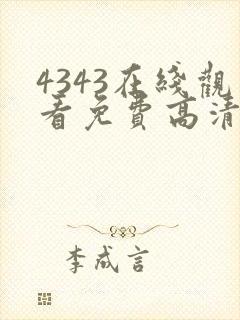 4343在綫觀
看免費高清
李成言